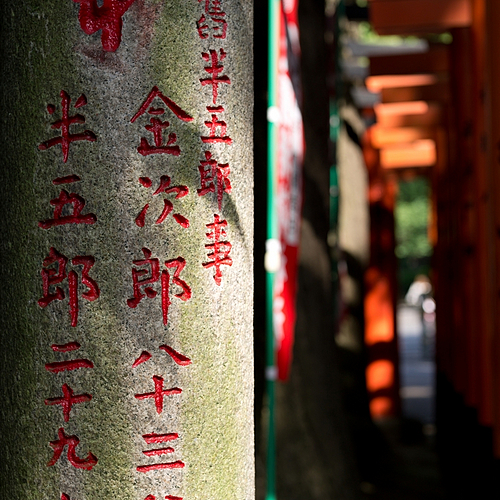 半五郎事
金次郎八十三
半五郎二十九